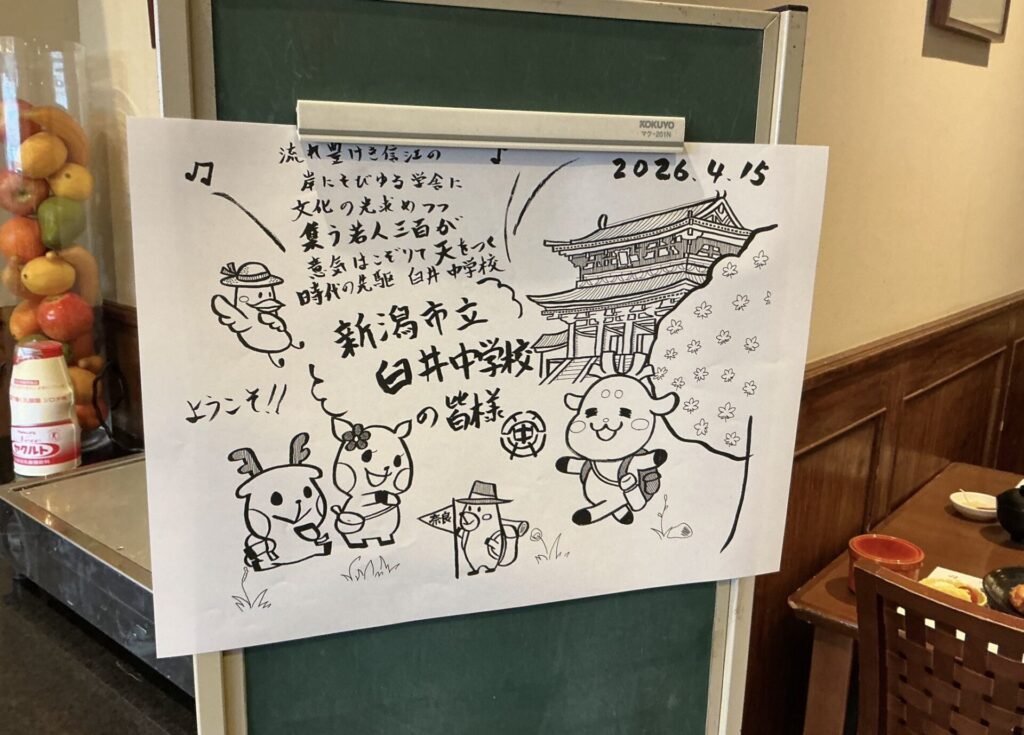 KOKUYO
マク-201N
2026.4.15
流れ豊けき信江の
岸にそびゆる学舎に
文化の光求めつつ
集う若人三百が
意気はこぞりて天をつく
時代の先駆 臼井中学校
新潟市立
臼井中学校
の皆様
ようこそ!!
奈良
ヤクルト